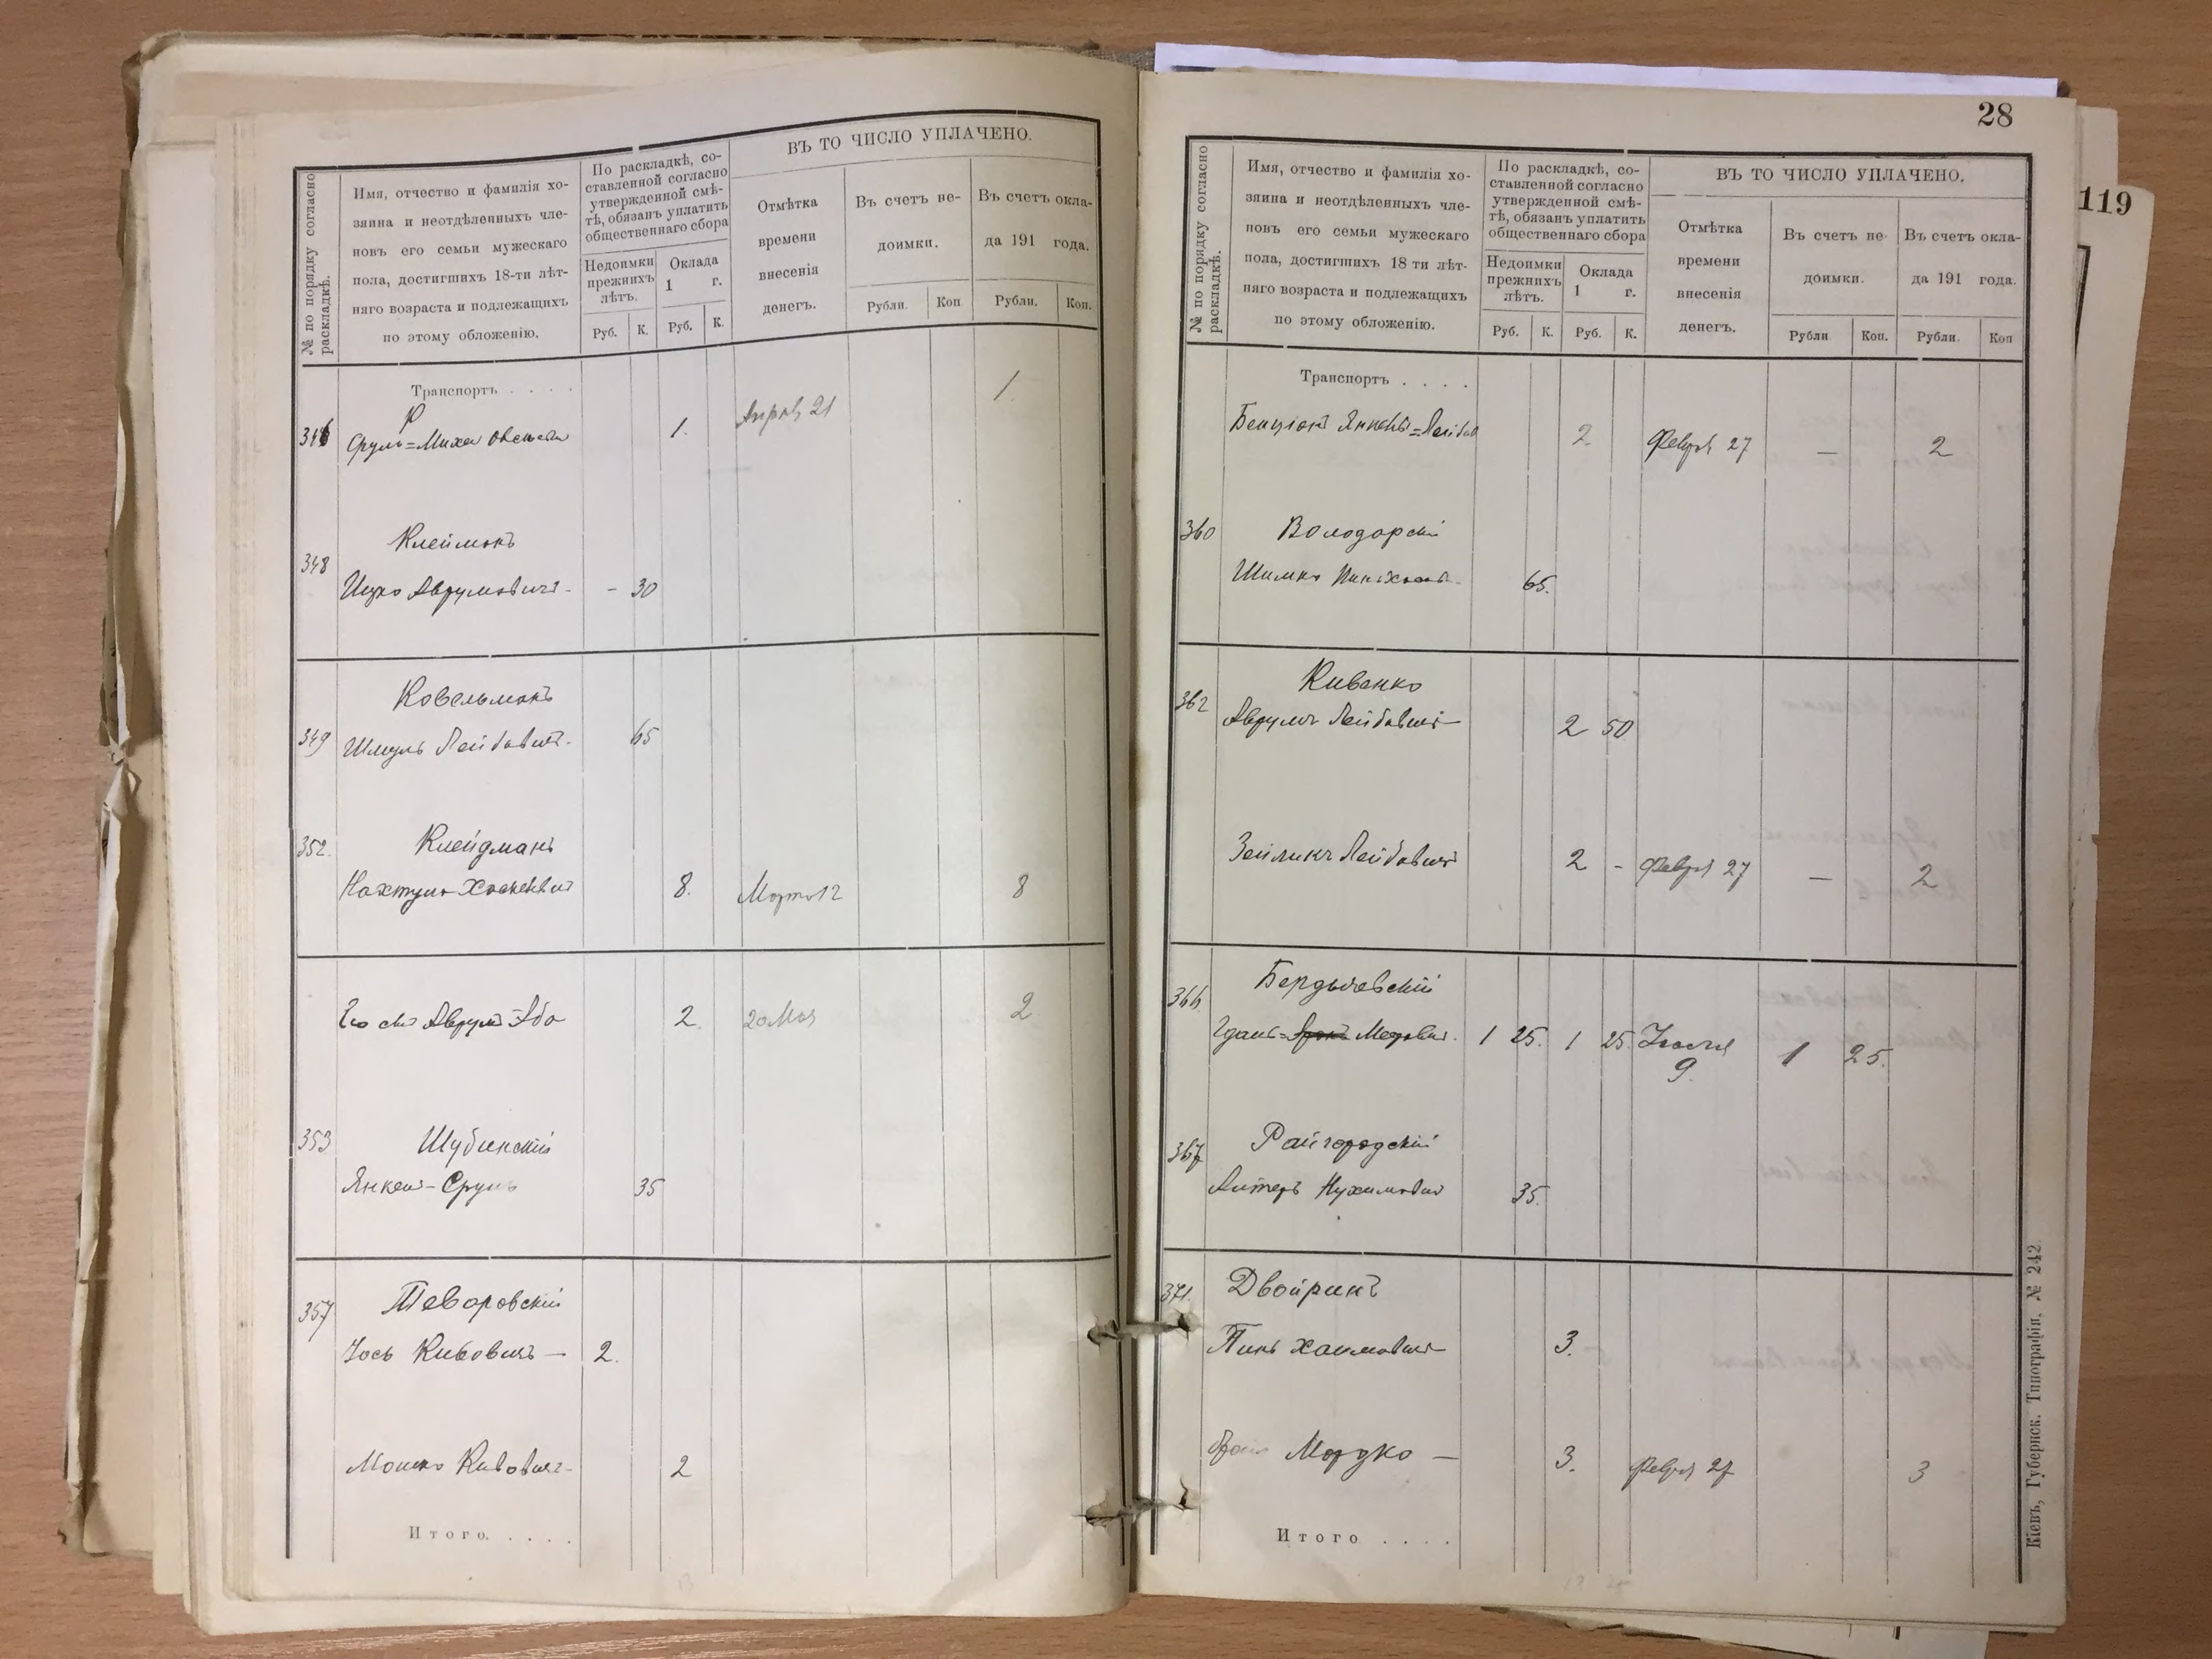 № по порядку согласно раскладкѣ.
Имя, отчество и фамилія хо-
зяина и неотдѣленныхъ чле-
новъ его семьи мужескаго
пола, достигшихъ 18-ти лѣт-
няго возраста и подлежащихъ
по этому обложенію.
По раскладкѣ, со-
ставленной согласно
утвержденной смѣ-
тѣ, обязанъ уплатить
общественнаго сбора
Недоимки
прежнихъ
лѣтъ.
Оклада
1 г.
Руб. К. Руб. К.
ВЪ ТО ЧИСЛО УПЛАЧЕНО.
Отмѣтка
времени
внесенія
денегъ.
Въ счетъ не-
доимки.
Рубли. Коп
Въ счетъ окла-
да 191 года.
Рубли. Коп.
Транспортъ . . . .
Сруль=Миха 1. 21 1.
348 Клейманъ
Ицко Аврумовичъ - - 30
349 Ковельманъ
Шмуль Лейбовичъ - 65
352. Клейдманъ
8. Марта 12 8
Его сынъ Аврумъ Аба 2. 20 Мая 2
353 Шубинскій
Янкель-Сруль 35
357 Теваровскій
Іось Кивовичъ — 2.
Мошко Кивовичъ - 2
Итого. . . . .
28
№ по порядку согласно раскладкѣ.
Имя, отчество и фамилія хо-
зяина и неотдѣленныхъ чле-
новъ его семьи мужескаго
пола, достигшихъ 18 ти лѣт-
няго возраста и подлежащихъ
по этому обложенію.
По раскладкѣ, со-
ставленной согласно
утвержденной смѣ-
тѣ, обязанъ уплатить
общественнаго сбора
Недоимки
прежнихъ
лѣтъ.
Оклада
1 г.
Руб. К. Руб. К.
ВЪ ТО ЧИСЛО УПЛАЧЕНО.
Отмѣтка
времени
внесенія
денегъ.
Въ счетъ не-
доимки.
Рубли Коп.
Въ счетъ окла-
да 191 года.
Рубли. Коп
Транспортъ . . . .
Бенціонъ Янкель=Лейбов 2. Февр 27 — 2
360 Володарскій
Шимко 65.
362 Кивенко
Аврумъ Лейбовичъ 2 50
Зейликъ Лейбовичъ 2 - Февр 27 — 2
366 Бердычевскій
1 25. 1 25. Іюля 9. 1 25.
367 Райгородскій
Алтеръ Нухимовичъ 35.
371. Двойринъ
Пинь Хаимовичъ 3.
братъ Мордко — 3. Февр 27 3
Итого . . . .
Кіевъ, Губернск. Типографія, № 242.
119